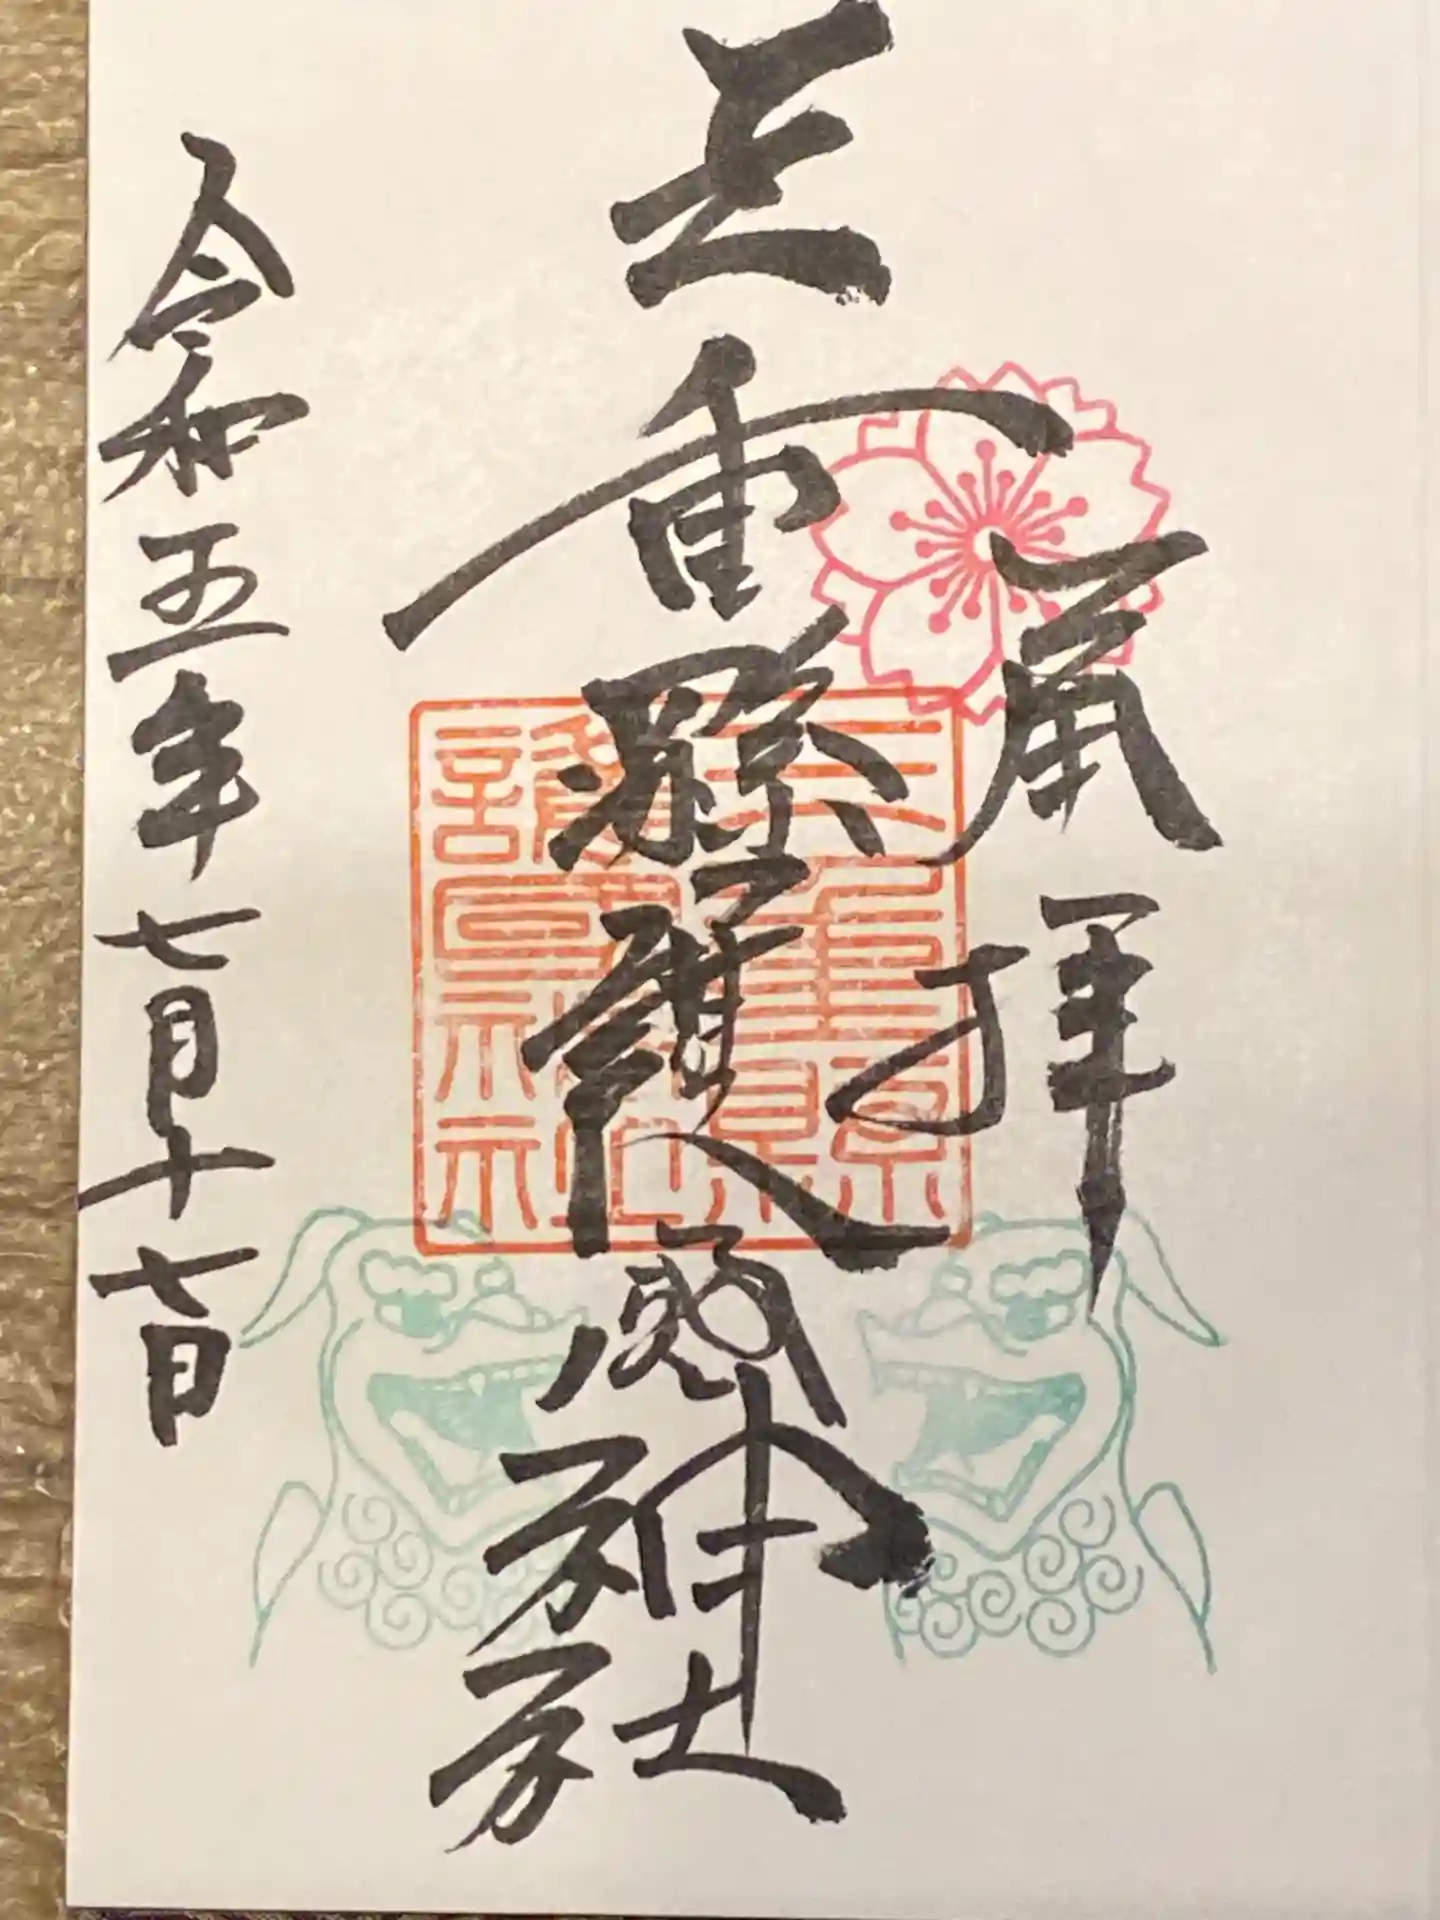 奉拝
三重縣護國神社
三重縣護國神社
令和五年七月十七日